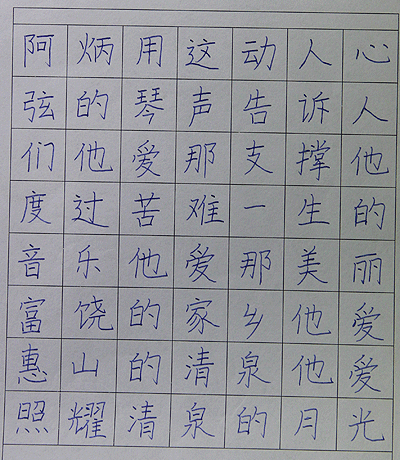 阿炳用这动人心
弦的琴声告诉人
们他爱那支撑他
度过苦难一生的
音乐他爱那美丽
富饶的家乡他爱
惠山的清泉他爱
照耀清泉的月光